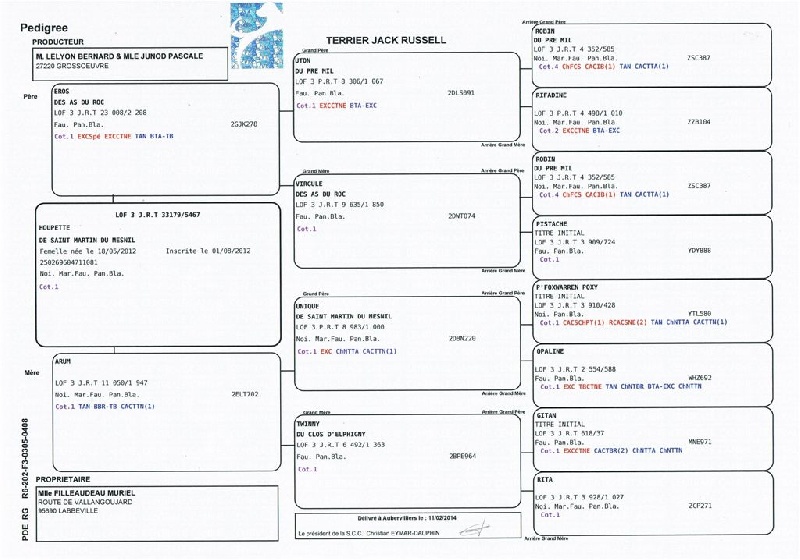 Pedigree
PRODUCTEUR
M. LELYON BERNARD & MLE JUNOD PASCALE
27220 GROSSOEUVRE
TERRIER JACK RUSSELL
Père
EROS
DES AS DU ROC
Fau. Pan.Bla.
2GJK270
Cot.1 EXCSpé EXCCTNE TAN BTA-TB
LOF 3 J.R.T 33179/5467
HOUPETTE
DE SAINT MARTIN DU MESNIL
Femelle née le 18/05/2012 Inscrite le 01/08/2012
250269604711081
Noi. Mar.Fau. Pan.Bla.
Cot.1
Mère
ARUM
LOF 3 J.R.T 11 050/1 947
Noi. Mar.Fau. Pan.Bla.
2ELT702
Cot.1 TAN BBR-TB CACTTN(1)
PROPRIETAIRE
Mlle FILLEAUDEAU MURIEL
ROUTE DE VALLANGOUJARD
95690 LABBEVILLE
PDE_RG R5-202-F3-0305-0408
Grand Père
UTON
DU PRE MIL
Fau. Pan.Bla.
2DLS091
Cot.1 EXCCTNE BTA-EXC
Arrière Grand Mère
Grand Mère
VIRGULE
DES AS DU ROC
LOF 3 J.R.T 9 635/1 850
Fau. Pan.Bla.
2DWT074
Cot.1
Arrière Grand Mère
Grand Père
Arrière Grand Père
UNIQUE
DE SAINT MARTIN DU MESNIL
Noi. Mar.Fau. Pan.Bla.
2DBN220
Cot.1 EXC ChNTTA CACTTN(1)
Arrière Grand Mère
Grand Mère
Arrière Grand Père
TWINNY
DU CLOS D'ELPHIGNY
LOF 3 J.R.T 6 492/1 363
Fau. Pan.Bla.
2BFE964
Cot.1
Délivré à Aubervilliers le : 11/02/2014
Le président de la S.C.C. Christian EYMAR-DAUPHIN
Arrière Grand Père
ROBIN
DU PRE MIL
LOF 3 J.R.T 4 352/585
Noi. Mar.Fau. Pan.Bla.
ZSC387
Cot.4 ChFCS CACIB(1) TAN CACTTA(1)
RIFADINE
LOF 3 P.R.T 4 490/1 010
Noi. Mar.Fau. Pan.Bla.
ZZB104
Cot.2 EXCCTNE BTA-EXC
ROBIN
DU PRE MIL
LOF 3 J.R.T 4 352/585
Noi. Mar.Fau. Pan.Bla.
ZSC387
Cot.4 ChFCS CACIB(1) TAN CACTTA(1)
PISTACHE
TITRE INITIAL
LOF 3 J.R.T 3 909/724
Fau. Pan.Bla.
YDY888
Cot.1
P'FOXWARREN FOXY
TITRE INITIAL
LOF 3 J.R.T 3 910/428
Noi. Pan.Bla.
YTL580
Cot.1 CACSCHPT(1) RCACSNE(2) TAN ChNTTA CACTTN(1)
OPALINE
LOF 3 J.R.T 2 554/588
Fau. Pan.Bla.
WHZ692
Cot.1 EXC TBCTNE TAN ChNTDR BTA-EXC ChNTTN
GITAN
TITRE INITIAL
LOF 3 J.R.T 618/37
Fau. Pan.Bla.
MNE971
Cot.1 EXCCTNE CACTBR(2) ChNTTA ChNTTN
RITA
LOF 3 J.R.T 3 928/1 027
Noi. Mar.Fau. Pan.Bla.
ZCF271
Cot.1
Arrière Grand Mère